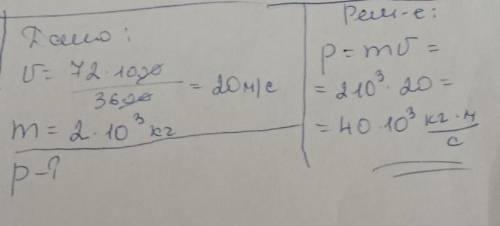 Дано:
V = 72·1000/3600 = 20 м/с
m = 2·10³ кг
p-?
Реш-е:
p = mv =
= 2 10³ · 20 =
= 40·10³ кг·м/с